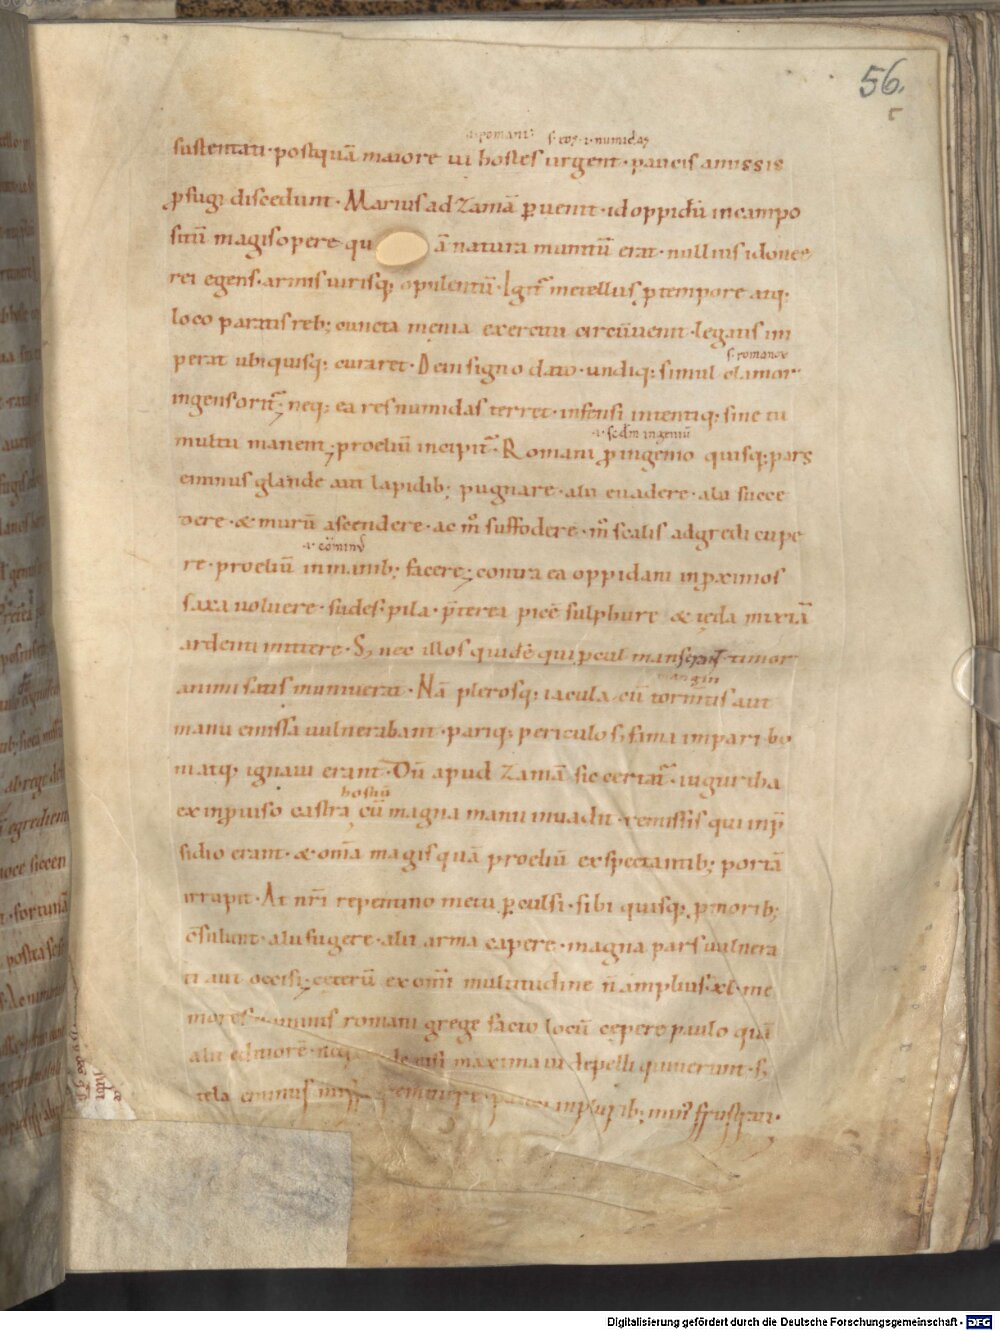 56.
.i. romani. s. eos .i. numidas
sustentati· postquā maiore ui hostes urgent· paucis amissis
ꝓfugi discedunt· Marius ad Zamā ꝑuenit· id oppidū in campo
sitū magis opere qu ā natura munitū erat· nullius idoneę
rei egens· armis uirisq; opulentū· Igit᷑ metellus ꝑ tempore atq;
loco paratis reb; cuncta męnia exercitu circūuenit· legatis im
perat ubi quisq; curaret· Dein signo dato· undiq; simul clamor
s. romanoꝝ
ingens orit᷑; neq; ea res numidas terret· infensi intentiq; sine tu
multu manent; proeliū incipit᷑· Romani ꝑ ingenio quisq; pars
.i. scdm ingeniū
eminus glande aut lapidib; pugnare· alii euadere· alii succe
dere· & murū ascendere· ac m̄ suffodere· m̄ scalis adgredi cupe
re· proeliū in manib; facere; contra ea oppidani in ꝓximos
.i. cōminꝰ
saxa uoluere· sudes· pila· p̄terea picē sulphure & tęda mixtā
ardenti mittere· S; nec illos quidē qui ꝓcul manserant· timor
animi satis muniuerat· Nā plerosq; iacula cū torm̄tis aut
manu emissa uulnerabant· pariq; periculo s; fama impari bo
ni atq; ignaui erant· Dū apud Zamā sic certat᷑· iugurtha
ex inꝓuiso castra cū magna manu inuadit· remissis qui in p̄
hostiū
sidio erant· & om̄ia magis quā proeliū expectantib; portā
irrupit· At nr̄i repentino metu ꝑculsi· sibi quisq; ꝑ morib;
cōsulunt· alii fugere· alii arma capere· magna pars uulnera
ti aut occisi; ceterū ex om̄i multitudine n̄ amplius· xl· me
mores nominis romani grege facto locū cepere paulo quā
alii editiorē· neq; inde ui maxima ui depelli quiuerunt· s;
tela eminus missa remittere· pauci in plurib; minꝰ frustrati·
Digitalisierung gefördert durch die Deutsche Forschungsgemeinschaft - DFG